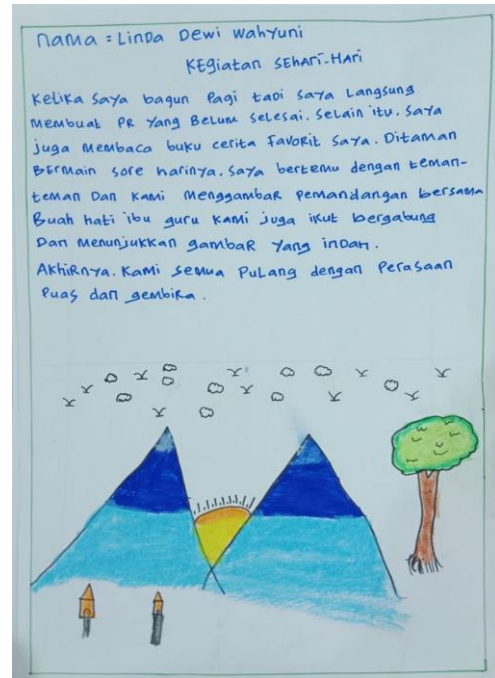 nama = Linda Dewi Wahyuni
Kegiatan Sehari-Hari
Ketika saya bagun pagi tadi saya langsung
membuat PR yang belum selesai. selain itu. saya
juga membaca buku cerita favorit saya. Ditaman
Bermain sore harinya. saya bertemu dengan teman-
teman dan kami menggambar pemandangan bersama
Buah hati ibu guru kami juga ikut bergabung
Dan menunjukkan gambar yang indah.
Akhirnya. kami semua pulang dengan perasaan
puas dan gembira.